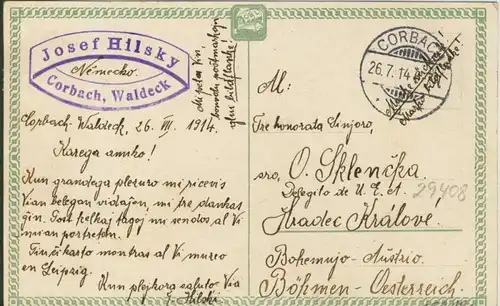 Josef Hilsky
Německo.
Corbach, Waldeck
Mi petas Vin
bonvole postmarkojn
glui bildflanke!
CORBACH
26.7.14
bildflanke!
Corbach-Waldeck, 26. VII. 1914.
Karega amiko!
Kun grandega plezuro mi ricevis
Vian belegan vidaĵon, mi tre dankas
ĝin. Post kelkaj tagoj mi sendos al Vi
mian portreton.
Tiu ĉi karto montras al Vi muzeo
en Leipzig.
Kun plejkora saluto Via
J. Hilski
Al:
Tre honorata Sinjoro,
sro, O. Sklenčka,
Delegito de U. E. A.
29408
Hradec Králové,
Bohemujo-Austrio.
Böhmen-Oesterreich.